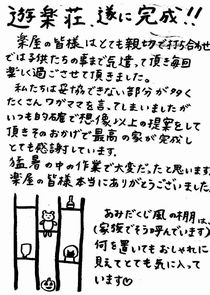 遊楽荘、遂に完成!!
楽屋の皆様はとても親切で打ち合わせ
では子供たちの事まで気遣って頂き毎回
楽しく過ごさせて頂きました。
私たちは妥協できない部分が多く
たくさんワガママを言ってしまいましたが
いつも的確で想像以上の提案をして
頂きそのおかげで最高の家が完成し
とても感謝しています。
猛暑の中の作業で大変だったと思います。
楽屋の皆様本当にありがとうございました。
あみだくじ風の棚は、
(家族でそう呼んでいます)
何を置いてもおしゃれに
見えてとても気に入って
います♡